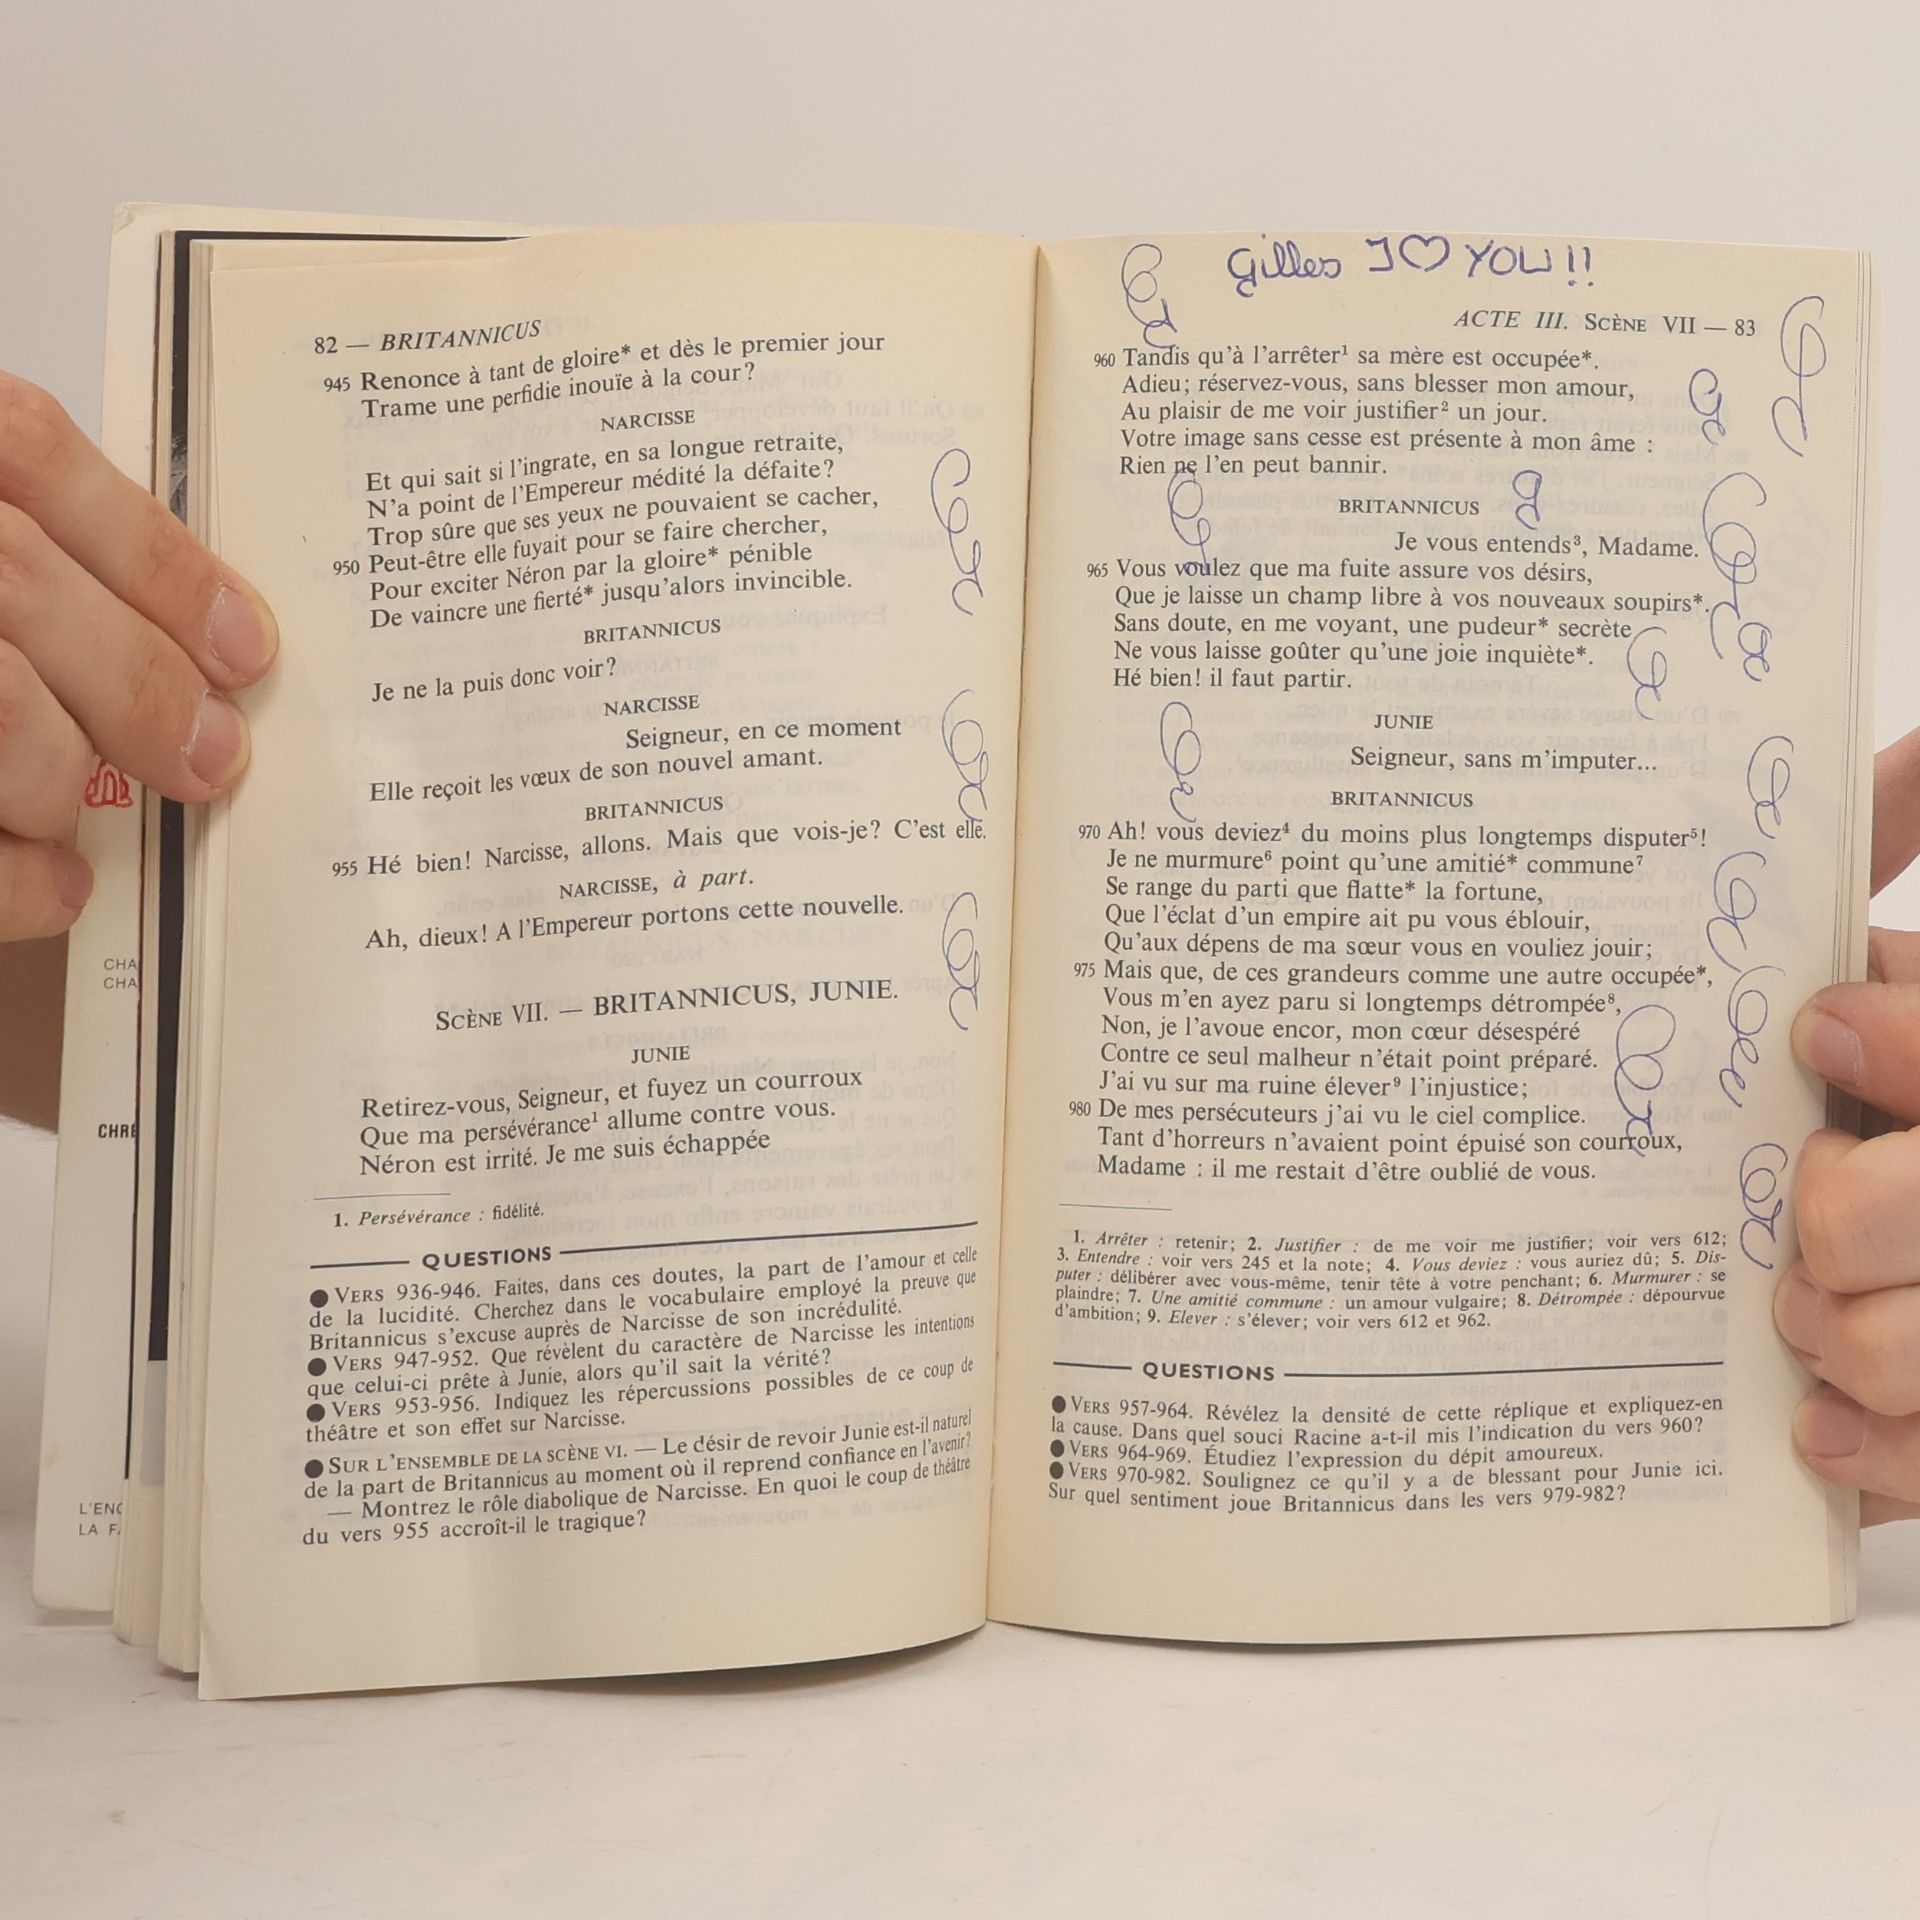 82 — BRITANNICUS
945 Renonce à tant de gloire* et dès le premier jour
Trame une perfidie inouïe à la cour?
NARCISSE
Et qui sait si l'ingrate, en sa longue retraite,
N'a point de l'Empereur médité la défaite?
Trop sûre que ses yeux ne pouvaient se cacher,
950 Peut-être elle fuyait pour se faire chercher,
Pour exciter Néron par la gloire* pénible
De vaincre une fierté* jusqu'alors invincible.
BRITANNICUS
Je ne la puis donc voir?
NARCISSE
Seigneur, en ce moment
Elle reçoit les vœux de son nouvel amant.
BRITANNICUS
955 Hé bien! Narcisse, allons. Mais que vois-je? C'est elle.
NARCISSE, à part.
Ah, dieux! A l'Empereur portons cette nouvelle.
SCÈNE VII. — BRITANNICUS, JUNIE.
JUNIE
Retirez-vous, Seigneur, et fuyez un courroux
Que ma persévérance¹ allume contre vous.
Néron est irrité. Je me suis échappée
1. Persévérance : fidélité.
QUESTIONS
● VERS 936-946. Faites, dans ces doutes, la part de l'amour et celle
de la lucidité. Cherchez dans le vocabulaire employé la preuve que
Britannicus s'excuse auprès de Narcisse de son incrédulité.
● VERS 947-952. Que révèlent du caractère de Narcisse les intentions
que celui-ci prête à Junie, alors qu'il sait la vérité?
● VERS 953-956. Indiquez les répercussions possibles de ce coup de
théâtre et son effet sur Narcisse.
● SUR L'ENSEMBLE DE LA SCÈNE VI. — Le désir de revoir Junie est-il naturel
de la part de Britannicus au moment où il reprend confiance en l'avenir?
— Montrez le rôle diabolique de Narcisse. En quoi le coup de théâtre
du vers 955 accroît-il le tragique?
CHA
CHA
CHRÉ
L'ENC
LA FA
Gilles I ♡ YOU!!
ACTE III. SCÈNE VII — 83
960 Tandis qu'à l'arrêter¹ sa mère est occupée*.
Adieu; réservez-vous, sans blesser mon amour,
Au plaisir de me voir justifier² un jour.
Votre image sans cesse est présente à mon âme :
Rien ne l'en peut bannir.
BRITANNICUS
Je vous entends³, Madame.
965 Vous voulez que ma fuite assure vos désirs,
Que je laisse un champ libre à vos nouveaux soupirs*.
Sans doute, en me voyant, une pudeur* secrète
Ne vous laisse goûter qu'une joie inquiète*.
Hé bien! il faut partir.
JUNIE
Seigneur, sans m'imputer...
BRITANNICUS
970 Ah! vous deviez⁴ du moins plus longtemps disputer⁵!
Je ne murmure⁶ point qu'une amitié* commune⁷
Se range du parti que flatte* la fortune,
Que l'éclat d'un empire ait pu vous éblouir,
Qu'aux dépens de ma sœur vous en vouliez jouir;
975 Mais que, de ces grandeurs comme une autre occupée*,
Vous m'en ayez paru si longtemps détrompée⁸,
Non, je l'avoue encor, mon cœur désespéré
Contre ce seul malheur n'était point préparé.
J'ai vu sur ma ruine élever⁹ l'injustice;
980 De mes persécuteurs j'ai vu le ciel complice.
Tant d'horreurs n'avaient point épuisé son courroux,
Madame : il me restait d'être oublié de vous.
1. Arrêter : retenir; 2. Justifier : de me voir me justifier; voir vers 612;
3. Entendre : voir vers 245 et la note; 4. Vous deviez : vous auriez dû; 5. Dis-
puter : délibérer avec vous-même, tenir tête à votre penchant; 6. Murmurer : se
plaindre; 7. Une amitié commune : un amour vulgaire; 8. Détrompée : dépourvue
d'ambition; 9. Elever : s'élever; voir vers 612 et 962.
QUESTIONS
● VERS 957-964. Révélez la densité de cette réplique et expliquez-en
la cause. Dans quel souci Racine a-t-il mis l'indication du vers 960?
● VERS 964-969. Étudiez l'expression du dépit amoureux.
● VERS 970-982. Soulignez ce qu'il y a de blessant pour Junie ici.
Sur quel sentiment joue Britannicus dans les vers 979-982?